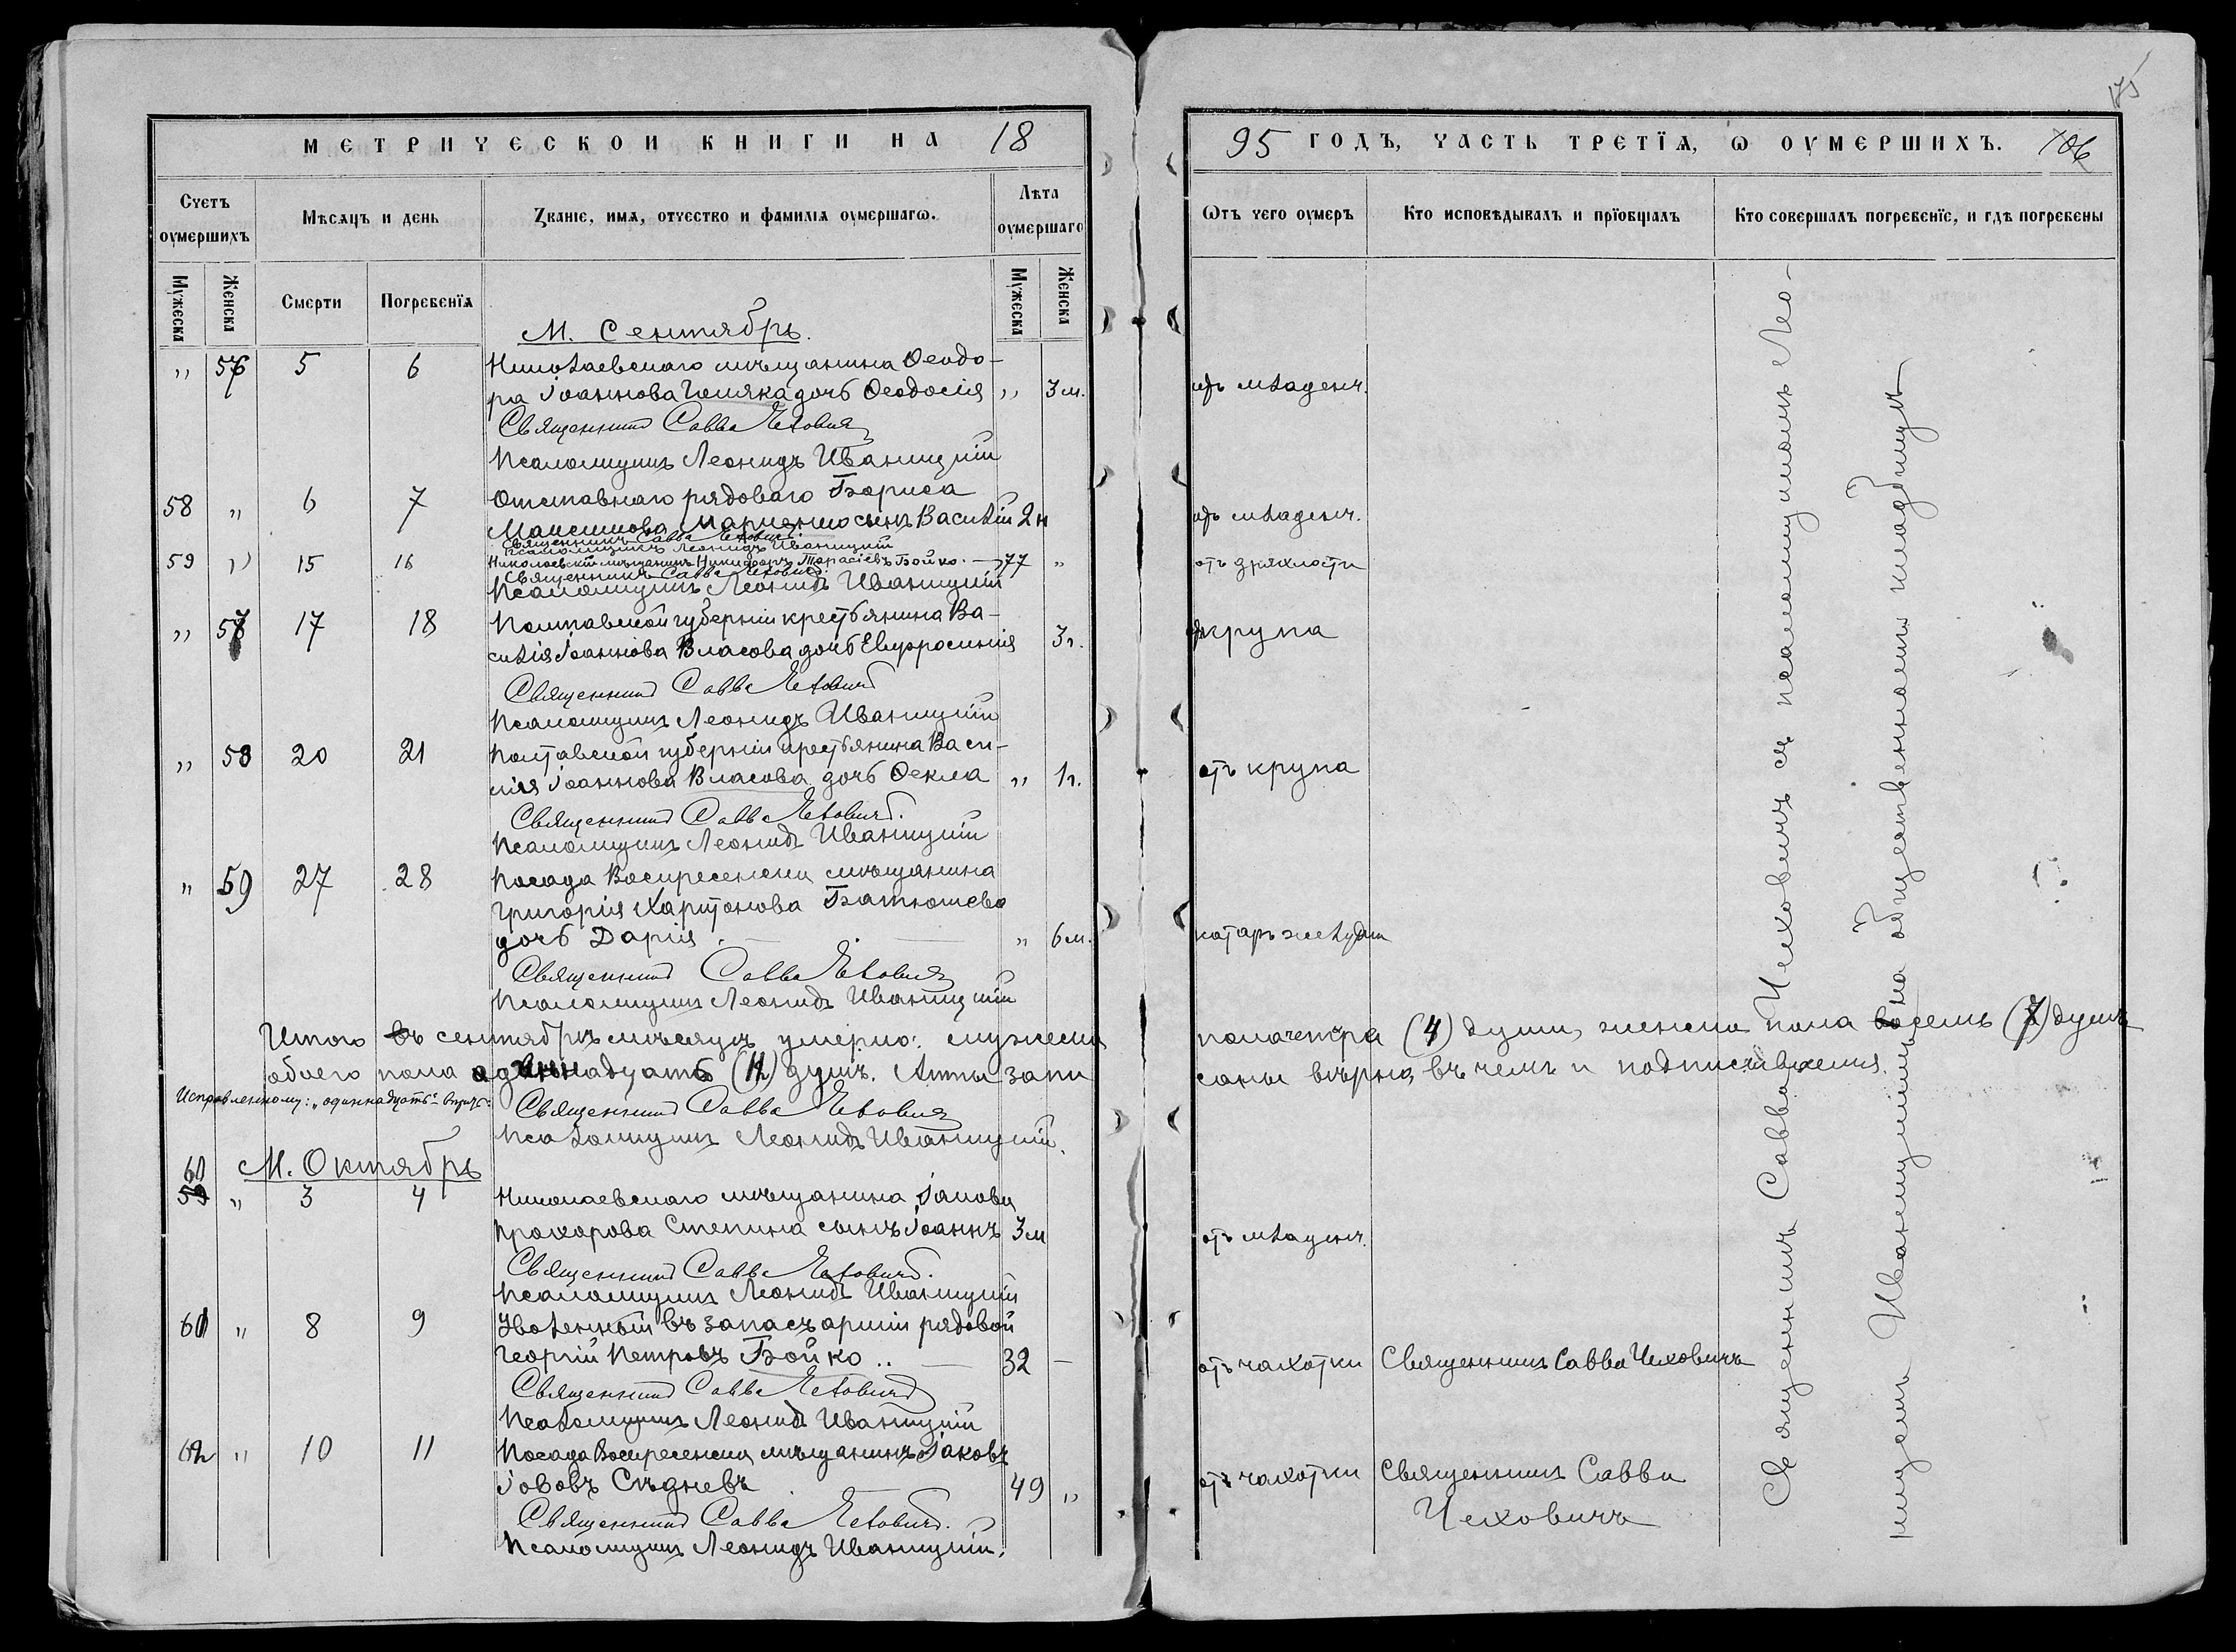 175
МЕТРИЧЕСКОЙ КНИГИ НА 18
95 ГОДЪ, ЧАСТЬ ТРЕТЇѦ, Ѡ ОУМЕРШИХЪ. 106
Счетъ оумершихъ
Мѣсяцъ и день
Званіе, имя, отчество и фамилія оумершагω.
Лѣта оумершаго
Мужеска
Женска
Смерти
Погребенїя
Мужеска
Женска
Ѡтъ чего оумеръ
Кто исповѣдывалъ и прїобщалъ
Кто совершалъ погребенїе, и гдѣ погребены
М. Сентябрь.
" 56 5 6 Николаевскаго мѣщанина Ѳеодо-
ра Іоаннова дочь Ѳеодосія " 3 м. отъ младенч.
Священникъ Савва Чеховичъ
Псаломщикъ Леонидъ Иваницкій
58 " 6 7 Отставнаго рядоваго Бориса
Максимова Марченко сынъ Василій 2 н отъ младенч.
Священникъ Савва Чеховичъ
Псаломщикъ Леонидъ Иваницкій
59 " 15 16 Николаевскій мѣщанинъ Никифоръ Тарасіевъ Бойко. — 77 " отъ дряхлости
Священникъ Савва Чеховичъ
Псаломщикъ Леонидъ Иваницкій
" 57 17 18 Полтавской губерніи крестьянина Ва-
силія Іоаннова Власова дочь Евфросинія 3 г. крупа
Священникъ Савва Чеховичъ
Псаломщикъ Леонидъ Иваницкій
" 58 20 21 Полтавской губерніи крестьянина Васи-
лія Іоаннова Власова дочь Ѳекла " 1 г. отъ крупа
Священникъ Савва Чеховичъ.
Псаломщикъ Леонидъ Иваницкій
" 59 27 28 Посада Воскресенска мѣщанина
Григорія Харитонова Батюшева
дочь Дарія. — " 6 м. катаръ желудка
Священникъ Савва Чеховичъ
Псаломщикъ Леонидъ Иваницкій
Итого въ сентябрѣ мѣсяцѣ умерло: мужеска пола четыре (4) души, женска пола семь (7) душъ
обоего пола одиннадцать (11) душъ. Акты записаны вѣрно, въ чемъ и подписываемся.
Исправленному: "одиннадцать" вѣрить:
Священникъ Савва Чеховичъ
Псаломщикъ Леонидъ Иваницкій.
М. Октябрь
60 " 3 4 Николаевскаго мѣщанина Іакова
Прохорова Степина сынъ Іоаннъ 3 м отъ младенч.
Священникъ Савва Чеховичъ.
Псаломщикъ Леонидъ Иваницкій
61 " 8 9 Уволенный въ запасъ арміи рядовой
Георгій Петровъ Бойко .. — 32 — отъ чахотки Священникъ Савва Чеховичъ
Священникъ Савва Чеховичъ
Псаломщикъ Леонидъ Иваницкій
62 " 10 11 Посада Воскресенска мѣщанинъ Іаковъ
Іововъ Сѣдневъ 49 " отъ чахотки Священникъ Савва
Чеховичъ
Священникъ Савва Чеховичъ.
Псаломщикъ Леонидъ Иваницкій.
Священникъ Савва Чеховичъ съ псаломщикомъ Лео-
нидомъ Иваницкимъ на общественномъ кладбищѣ